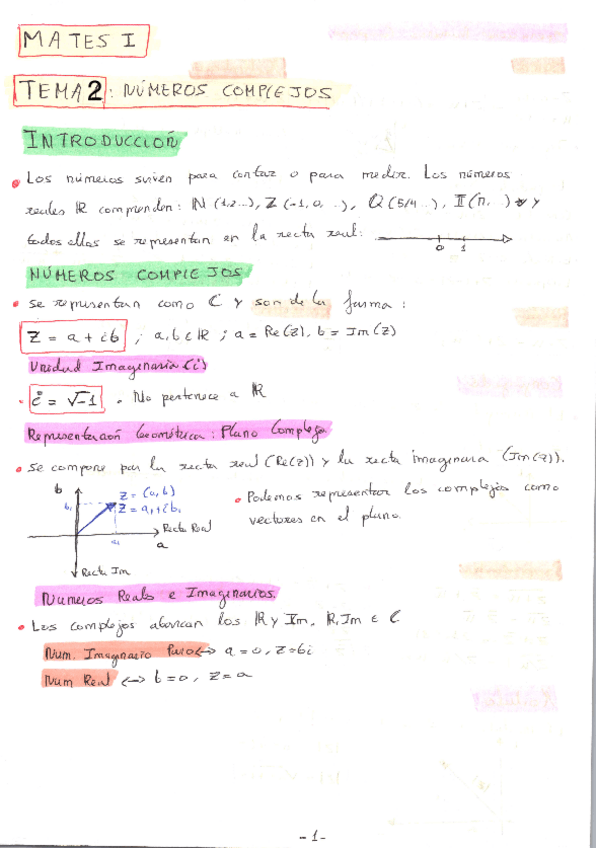 MATES I
TEMA 2: NÚMEROS COMPLEJOS
INTRODUCCIÓN
• Los números sirven para contar o para medir. Los números
reales ℝ comprenden: ℕ (1,2...), ℤ (-1,0, ..), ℚ (5/4 ..), 𝕀 (π, ..) y
todos ellos se representan en la recta real:
0 1
NÚMEROS COMPLEJOS
• Se representan como ℂ y son de la forma:
Z = a + ib ; a,b ∈ ℝ ; a = Re(Z), b = Im(Z)
Unidad Imaginaria (i)
• i = √-1 . No pertenece a ℝ
Representación Geométrica: Plano Complejo
• Se compone por la recta real (Re(z)) y la recta imaginaria (Im(z)).
b
b₁
Z = (a, b)
Z = a₁+ib₁
Recta Real
a₁
a
Recta Im
• Podemos representar los complejos como
vectores en el plano.
Números Reales e Imaginarios
• Los complejos abarcan los ℝ y Im. ℝ, Im ∈ ℂ
Num. Imaginario Puro ↔ a = 0, Z = bi
Num Real ↔ b = 0, Z = a
- 1 -